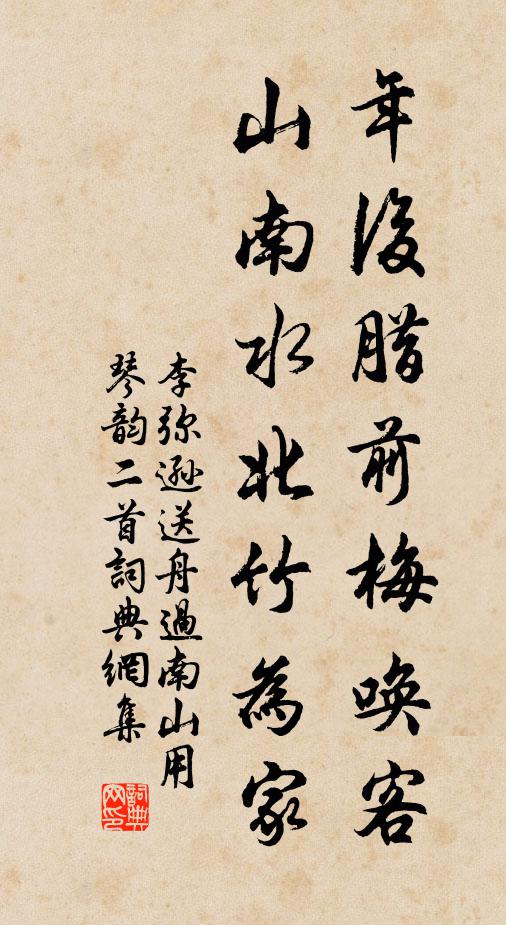 年後腊前梅唤客
山南水北竹為家
李弥遜送舟過南山用
琴韵二首詞典網集
詞典网印